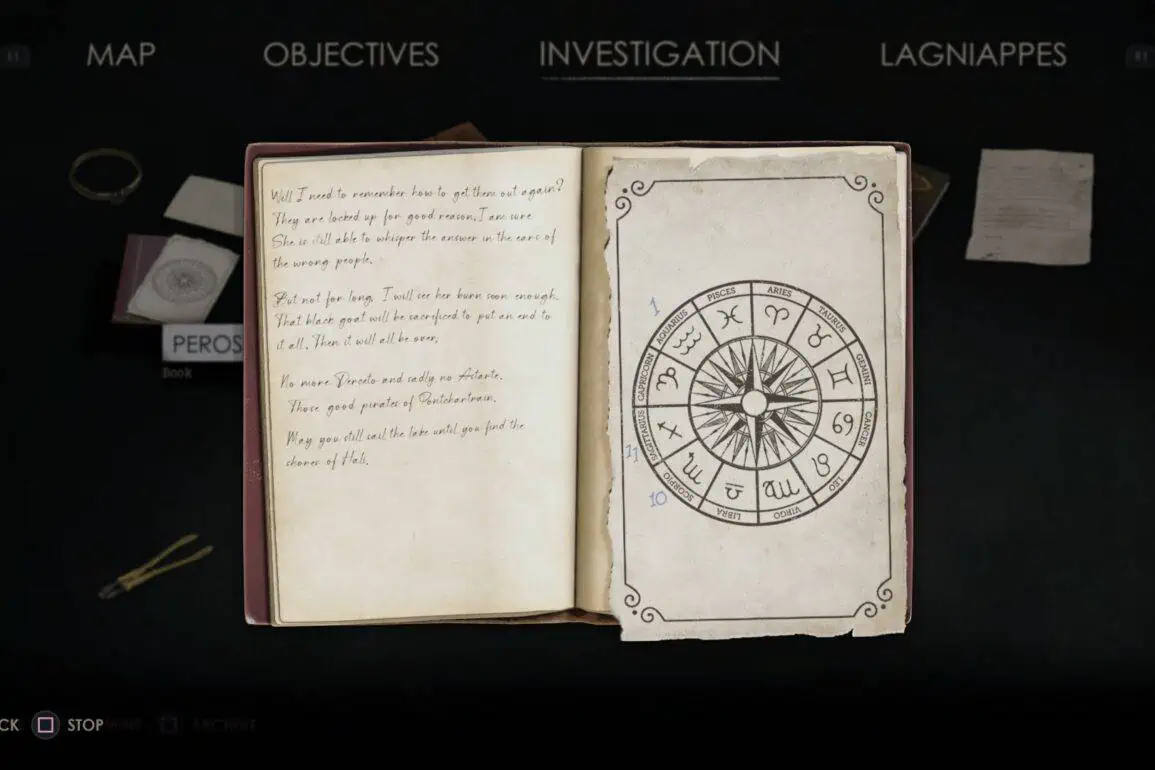 MAP
OBJECTIVES
INVESTIGATION
LAGNIAPPES
Well I need to remember how to get them out again?
They are locked up for good reason, I am sure
She is still able to whisper the answer in the ears of
the wrong people.
But not for long, I will see her burn soon enough.
That black goat will be sacrificed to put an end to
it all. Then it will all be over.
No more Derceto and sadly no Astarte.
Those good pirates of Pontchartrain.
May you still sail the lake until you find the
shores of Hali.
1
PISCES
ARIES
TAURUS
GEMINI
CANCER
LEO
VIRGO
LIBRA
SCORPIO
SAGITTARIUS
CAPRICORN
AQUARIUS
11
10
PEROS
Book
CK
STOP